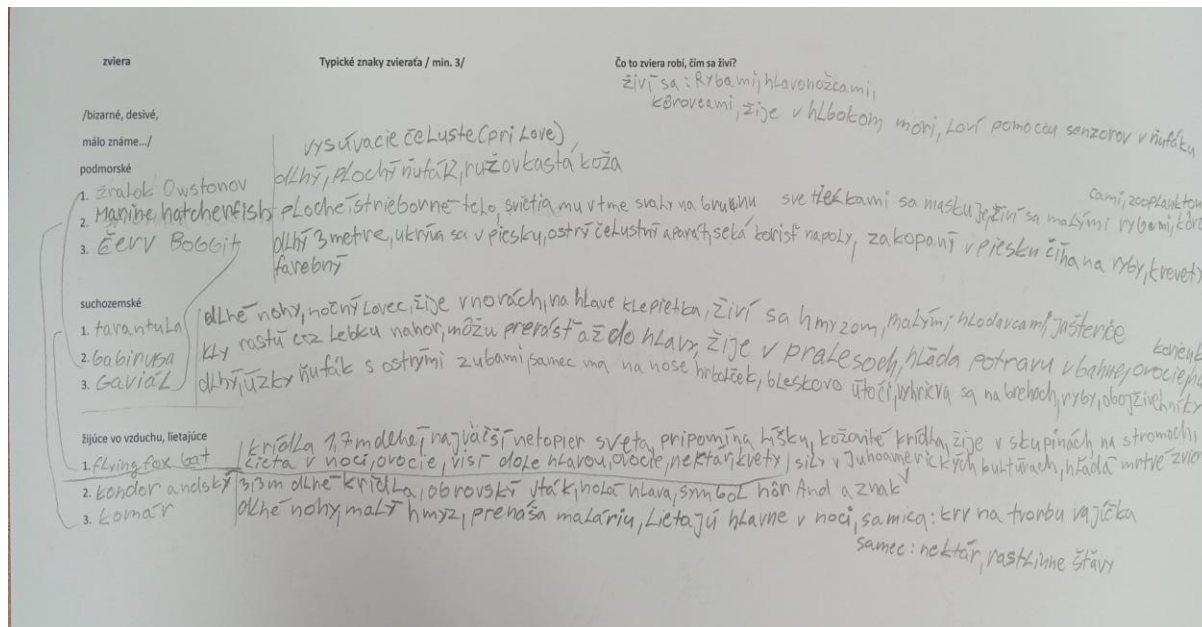 zviera Typické znaky zvieraťa / min. 3/ Čo to zviera robí, čím sa živí?
živí sa: Rybami, hlavonožcami,
kôrovcami, žije v hlbokom mori, loví pomocou senzorov v ňufáku
/bizarné, desivé,
málo známe.../ vysúvacie čeluste (pri love),
podmorské dlhý, plochý ňufák, ružovkastá koža
1. žralok Owstonov
2. Manine hatchenfish ploché, strieborné telo, svietia mu v tme svaly na bruchu svetielkami sa maskuje, živí sa malými rybami, kôrov
cami, zooplankton
3. Červ Bobbit dlhý 3 metre, ukrýva sa v piesku, ostrý čelustný aparát, seká korisť napoly, zakopaný v piesku číha na ryby, krevety
farebný
suchozemské
1. tarantula dlhé nohy, nočný lovec, žije v norách, na hlave klepietka, živí sa hmyzom, malými hlodavcami, jašterice
2. Babirusa kly rastú cez lebku nahor, môžu prerásť až do hlavy, žije v pralesoch, hľadá potravu v bahne, ovocie,
3. Gaviál dlhý, úzky ňufák s ostrými zubami, samec má na nose hrbolček, bleskovo útočí, vyhrieva sa na brehoch, ryby, obojživelníky
žijúce vo vzduchu, lietajúce krídla 1,7m dlhé, najväčší netopier sveta, pripomína líšku, kožovité krídla, žije v skupinách na stromoch,
1. flying fox bat lieta v noci, ovocie, visí dole hlavou, ovocie, nektár, kvety
sily v Juhoamerických kultúrach, hľadá mrtve zvier
2. kondor andský 3,3m dlhé krídla, obrovský vták, holá hlava, symbol hôr And a znak
3. komár dlhé nohy, malý hmyz, prenáša maláriu, lietajú hlavne v noci, samica: krv na tvorbu vajíčka
samec: nektár, rastlinne šťavy